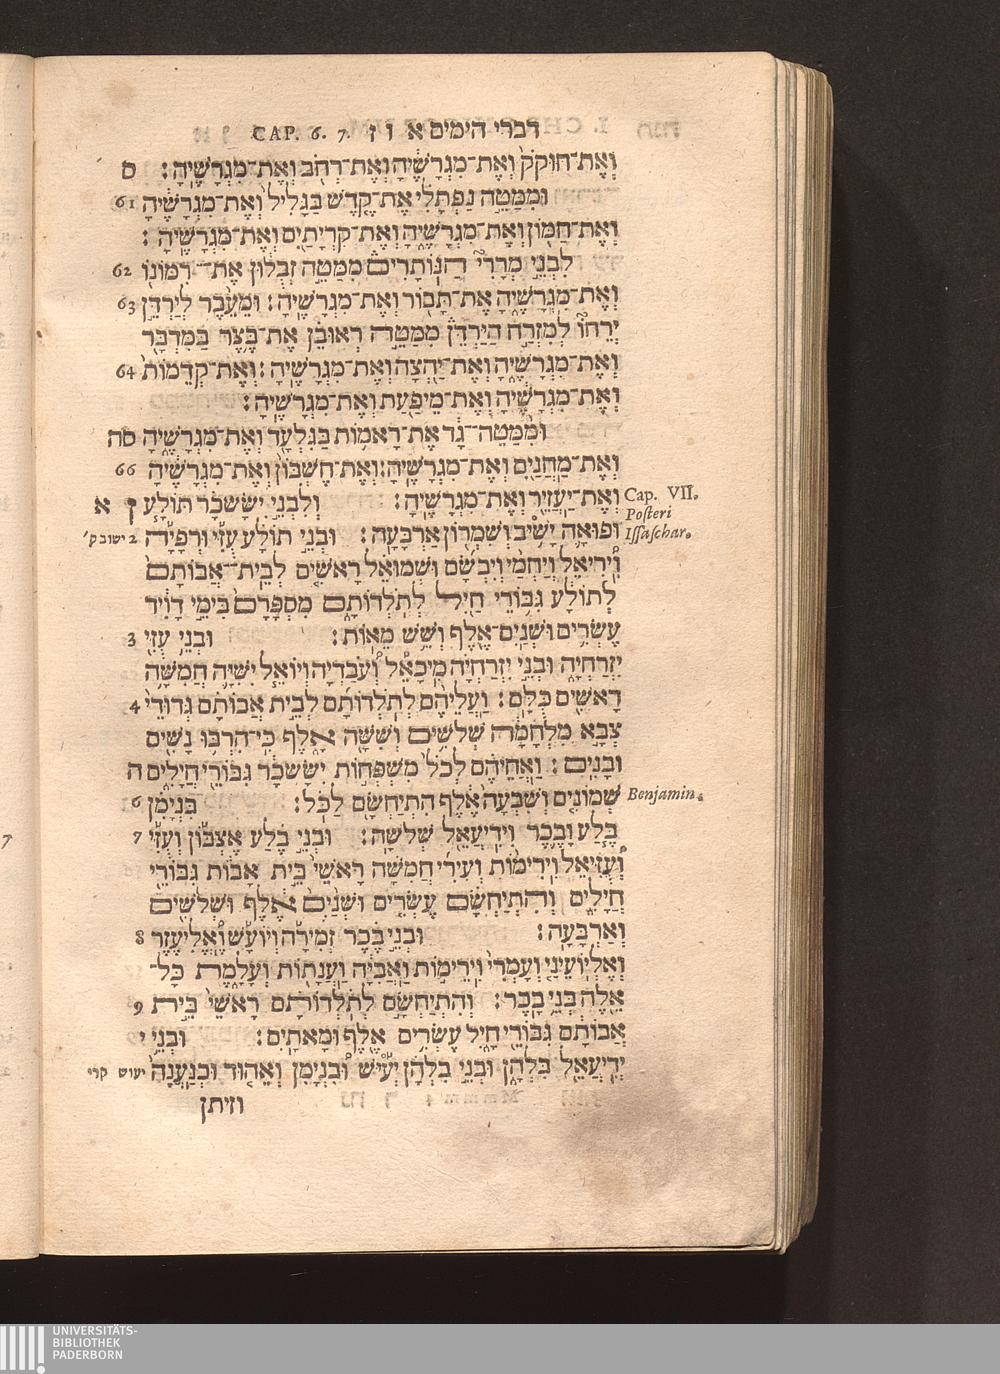 דברי הימים א ו ז CAP. 6. 7.
וְאֶת־חוּקֹק וְאֶת־מִגְרָשֶׁיהָ וְאֶת־רְחֹב וְאֶת־מִגְרָשֶׁיהָ׃ ס
וּמִמַּטֵּה נַפְתָּלִי אֶת־קֶדֶשׁ בַּגָּלִיל וְאֶת־מִגְרָשֶׁיהָ 61
וְאֶת־חַמּוֹן וְאֶת־מִגְרָשֶׁיהָ וְאֶת־קִרְיָתַיִם וְאֶת־מִגְרָשֶׁיהָ׃
לִבְנֵי מְרָרִי הַנּוֹתָרִים מִמַּטֵּה זְבֻלוּן אֶת־רִמּוֹנוֹ 62
וְאֶת־מִגְרָשֶׁיהָ אֶת־תָּבוֹר וְאֶת־מִגְרָשֶׁיהָ׃ וּמֵעֵבֶר לְיַרְדֵּן 63
יְרֵחוֹ לְמִזְרַח הַיַּרְדֵּן מִמַּטֵּה רְאוּבֵן אֶת־בֶּצֶר בַּמִּדְבָּר
וְאֶת־מִגְרָשֶׁיהָ וְאֶת־יַהְצָה וְאֶת־מִגְרָשֶׁיהָ׃ וְאֶת־קְדֵמוֹת 64
וְאֶת־מִגְרָשֶׁיהָ וְאֶת־מֵיפַעַת וְאֶת־מִגְרָשֶׁיהָ׃
וּמִמַּטֵּה־גָד אֶת־רָאמוֹת בַּגִּלְעָד וְאֶת־מִגְרָשֶׁיהָ סה
וְאֶת־מַחֲנַיִם וְאֶת־מִגְרָשֶׁיהָ׃ וְאֶת־חֶשְׁבּוֹן וְאֶת־מִגְרָשֶׁיהָ 66
וְאֶת־יַעְזֵיר וְאֶת־מִגְרָשֶׁיהָ׃ וְלִבְנֵי יִשָּׂשכָר תּוֹלָע ז א
Cap. VII.
Posteri
Issaschar.
וּפוּאָה יָשִׁיב וְשִׁמְרוֹן אַרְבָּעָה׃ וּבְנֵי תוֹלָע עֻזִּי וּרְפָיָה 2 ישוב ק׳
וִירִיאֵל וְיַחְמַי וְיִבְשָׂם וּשְׁמוּאֵל רָאשִׁים לְבֵית־אֲבוֹתָם
לְתוֹלָע גִּבּוֹרֵי חַיִל לְתֹלְדוֹתָם מִסְפָּרָם בִּימֵי דָוִיד
עֶשְׂרִים וּשְׁנַיִם־אֶלֶף וְשֵׁשׁ מֵאוֹת׃ וּבְנֵי עֻזִּי 3
יִזְרַחְיָה וּבְנֵי יִזְרַחְיָה מִיכָאֵל וְעֹבַדְיָה וְיוֹאֵל יִשִּׁיָּה חֲמִשָּׁה
רָאשִׁים כֻּלָּם׃ וַעֲלֵיהֶם לְתֹלְדוֹתָם לְבֵית אֲבוֹתָם גְּדוּדֵי 4
צְבָא מִלְחָמָה שְׁלֹשִׁים וְשִׁשָּׁה אָלֶף כִּי־הִרְבּוּ נָשִׁים
וּבָנִים׃ וַאֲחֵיהֶם לְכֹל מִשְׁפְּחוֹת יִשָּׂשכָר גִּבּוֹרֵי חֲיָלִים ה
שְׁמוֹנִים וְשִׁבְעָה אֶלֶף הִתְיַחְשָׂם לַכֹּל׃ בִּנְיָמִן 6
Benjamin.
בֶּלַע וָבֶכֶר וִידִיעֲאֵל שְׁלֹשָׁה׃ וּבְנֵי בֶלַע אֶצְבּוֹן וְעֻזִּי 7
וְעֻזִּיאֵל וִירִימוֹת וְעִירִי חֲמִשָּׁה רָאשֵׁי בֵּית אָבוֹת גִּבּוֹרֵי
חֲיָלִים וְהִתְיַחְשָׂם עֶשְׂרִים וּשְׁנַיִם אֶלֶף וּשְׁלֹשִׁים
וְאַרְבָּעָה׃ וּבְנֵי בֶּכֶר זְמִירָה וְיוֹעָשׁ וֶאֱלִיעֶזֶר 8
וְאֶלְיוֹעֵינַי וְעָמְרִי וִירֵימוֹת וַאֲבִיָּה וַעֲנָתוֹת וְעָלָמֶת כָּל־
אֵלֶּה בְּנֵי בָכֶר׃ וְהִתְיַחְשָׂם לְתֹלְדוֹתָם רָאשֵׁי בֵּית 9
אֲבוֹתָם גִּבּוֹרֵי חָיִל עֶשְׂרִים אֶלֶף וּמָאתָיִם׃ וּבְנֵי י
יְדִיעֲאֵל בִּלְהָן וּבְנֵי בִלְהָן יְעִישׁ וּבִנְיָמִן וְאֵהוּד וּכְנַעֲנָה יעוש קרי
וזיתן
UNIVERSITÄTS-
BIBLIOTHEK
PADERBORN